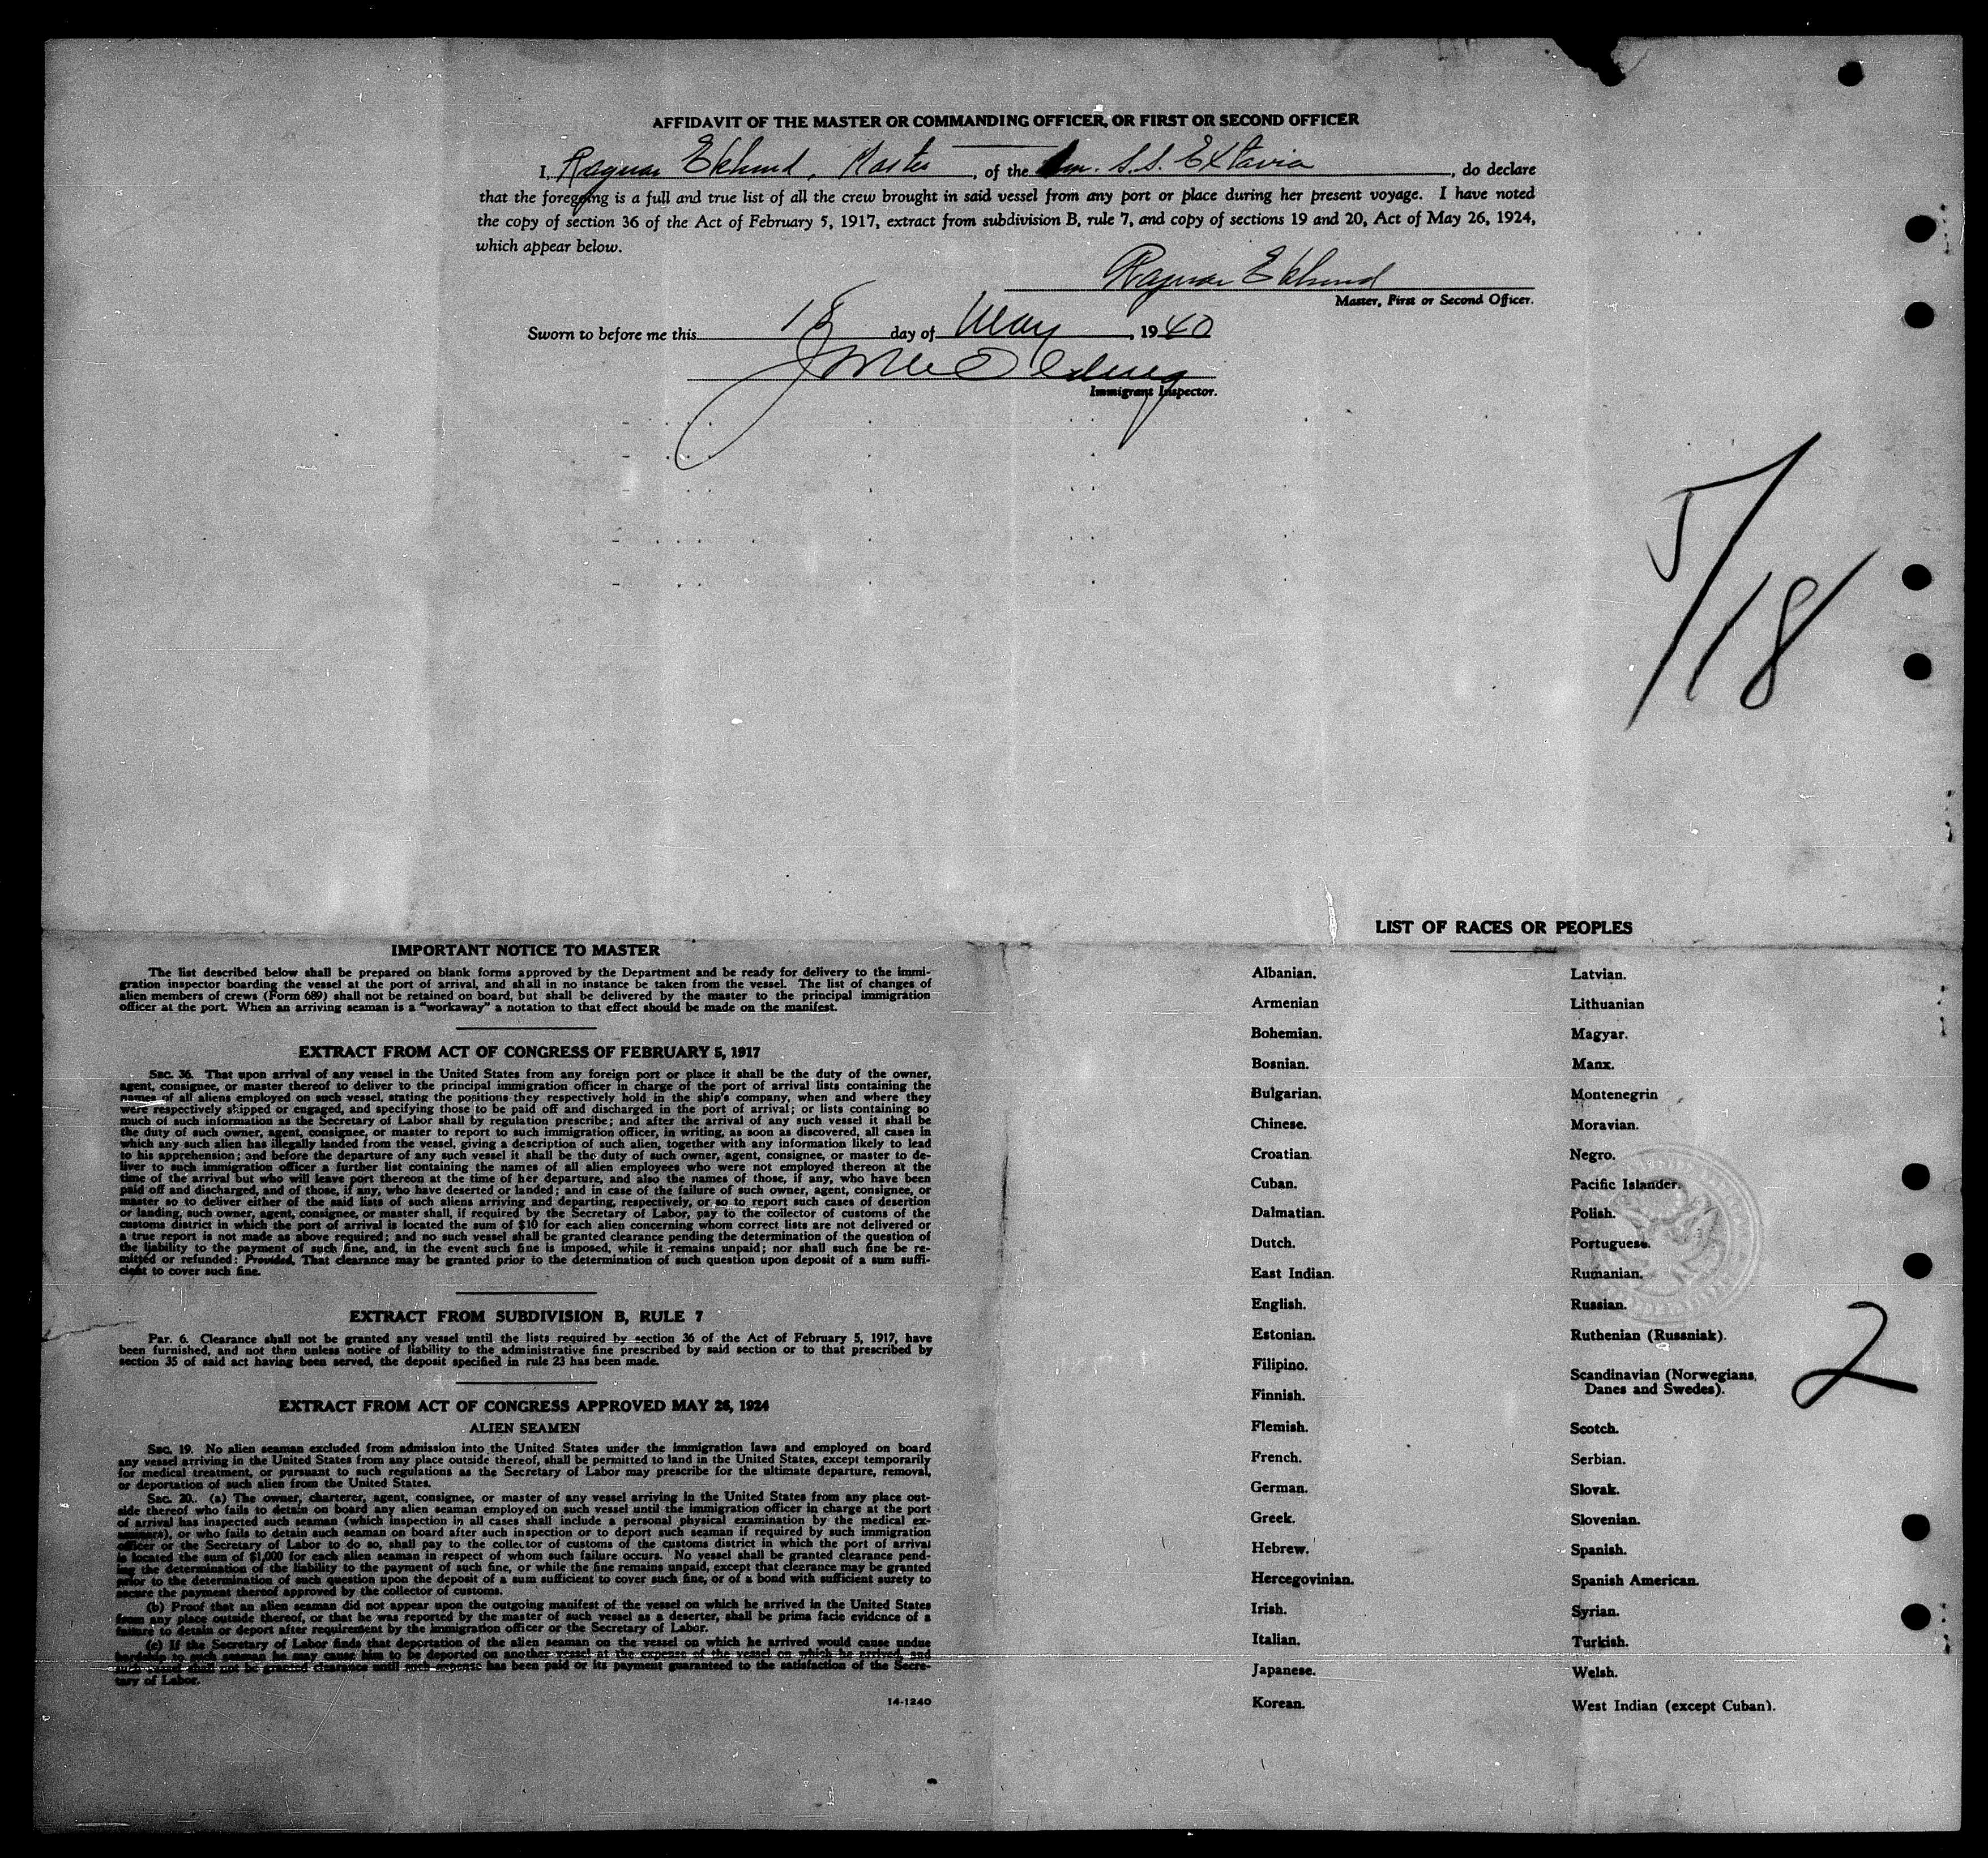 AFFIDAVIT OF THE MASTER OR COMMANDING OFFICER, OR FIRST OR SECOND OFFICER
I, Ragnar Eklund, Master, of the Am. S.S. Extavia, do declare
that the foregoing is a full and true list of all the crew brought in said vessel from any port or place during her present voyage. I have noted
the copy of section 36 of the Act of February 5, 1917, extract from subdivision B, rule 7, and copy of sections 19 and 20, Act of May 26, 1924,
which appear below.
Ragnar Eklund
Master, First or Second Officer.
Sworn to before me this 18 day of May, 1940
Immigrant Inspector.
5/18
IMPORTANT NOTICE TO MASTER
The list described below shall be prepared on blank forms approved by the Department and be ready for delivery to the immi-
gration inspector boarding the vessel at the port of arrival, and shall in no instance be taken from the vessel. The list of changes of
alien members of crews (Form 689) shall not be retained on board, but shall be delivered by the master to the principal immigration
officer at the port. When an arriving seaman is a "workaway" a notation to that effect should be made on the manifest.
EXTRACT FROM ACT OF CONGRESS OF FEBRUARY 5, 1917
SEC. 36. That upon arrival of any vessel in the United States from any foreign port or place it shall be the duty of the owner,
agent, consignee, or master thereof to deliver to the principal immigration officer in charge of the port of arrival lists containing the
names of all aliens employed on such vessel, stating the positions they respectively hold in the ship's company, when and where they
were respectively shipped or engaged, and specifying those to be paid off and discharged in the port of arrival; or lists containing so
much of such information as the Secretary of Labor shall by regulation prescribe; and after the arrival of any such vessel it shall be
the duty of such owner, agent, consignee, or master to report to such immigration officer, in writing, as soon as discovered, all cases in
which any such alien has illegally landed from the vessel, giving a description of such alien, together with any information likely to lead
to his apprehension; and before the departure of any such vessel it shall be the duty of such owner, agent, consignee, or master to de-
liver to such immigration officer a further list containing the names of all alien employees who were not employed thereon at the
time of the arrival but who will leave port thereon at the time of her departure, and also the names of those, if any, who have been
paid off and discharged, and of those, if any, who have deserted or landed; and in case of the failure of such owner, agent, consignee, or
master so to deliver either of the said lists of such aliens arriving and departing, respectively, or so to report such cases of desertion
or landing, such owner, agent, consignee, or master shall, if required by the Secretary of Labor, pay to the collector of customs of the
customs district in which the port of arrival is located the sum of $10 for each alien concerning whom correct lists are not delivered or
a true report is not made as above required; and no such vessel shall be granted clearance pending the determination of the question of
the liability to the payment of such fine, and, in the event such fine is imposed, while it remains unpaid; nor shall such fine be re-
mitted or refunded: Provided, That clearance may be granted prior to the determination of such question upon deposit of a sum suffi-
cient to cover such fine.
EXTRACT FROM SUBDIVISION B, RULE 7
Par. 6. Clearance shall not be granted any vessel until the lists required by section 36 of the Act of February 5, 1917, have
been furnished, and not then unless notice of liability to the administrative fine prescribed by said section or to that prescribed by
section 35 of said act having been served, the deposit specified in rule 23 has been made.
EXTRACT FROM ACT OF CONGRESS APPROVED MAY 26, 1924
ALIEN SEAMEN
SEC. 19. No alien seaman excluded from admission into the United States under the immigration laws and employed on board
any vessel arriving in the United States from any place outside thereof, shall be permitted to land in the United States, except temporarily
for medical treatment, or pursuant to such regulations as the Secretary of Labor may prescribe for the ultimate departure, removal,
or deportation of such alien from the United States.
SEC. 20. (a) The owner, charterer, agent, consignee, or master of any vessel arriving in the United States from any place out-
side thereof who fails to detain on board any alien seaman employed on such vessel until the immigration officer in charge at the port
of arrival has inspected such seaman (which inspection in all cases shall include a personal physical examination by the medical ex-
aminers), or who fails to detain such seaman on board after such inspection or to deport such seaman if required by such immigration
officer or the Secretary of Labor to do so, shall pay to the collector of customs of the customs district in which the port of arrival
is located the sum of $1,000 for each alien seaman in respect of whom such failure occurs. No vessel shall be granted clearance pend-
ing the determination of the liability to the payment of such fine, or while the fine remains unpaid, except that clearance may be granted
prior to the determination of such question upon the deposit of a sum sufficient to cover such fine, or of a bond with sufficient surety to
secure the payment thereof approved by the collector of customs.
(b) Proof that an alien seaman did not appear upon the outgoing manifest of the vessel on which he arrived in the United States
from any place outside thereof, or that he was reported by the master of such vessel as a deserter, shall be prima facie evidence of a
failure to detain or deport after requirement by the immigration officer or the Secretary of Labor.
(c) If the Secretary of Labor finds that deportation of the alien seaman on the vessel on which he arrived would cause undue
hardship to such seaman he may cause him to be deported on another vessel at the expense of the vessel on which he arrived, and
such vessel shall not be granted clearance until such expense has been paid or its payment guaranteed to the satisfaction of the Secre-
tary of Labor.
14-1240
LIST OF RACES OR PEOPLES
Albanian.
Armenian
Bohemian.
Bosnian.
Bulgarian.
Chinese.
Croatian.
Cuban.
Dalmatian.
Dutch.
East Indian.
English.
Estonian.
Filipino.
Finnish.
Flemish.
French.
German.
Greek.
Hebrew.
Hercegovinian.
Irish.
Italian.
Japanese.
Korean.
Latvian.
Lithuanian
Magyar.
Manx.
Montenegrin
Moravian.
Negro.
Pacific Islander.
Polish.
Portuguese.
Rumanian.
Russian.
Ruthenian (Russniak).
Scandinavian (Norwegians,
Danes and Swedes).
Scotch.
Serbian.
Slovak.
Slovenian.
Spanish.
Spanish American.
Syrian.
Turkish.
Welsh.
West Indian (except Cuban).
2